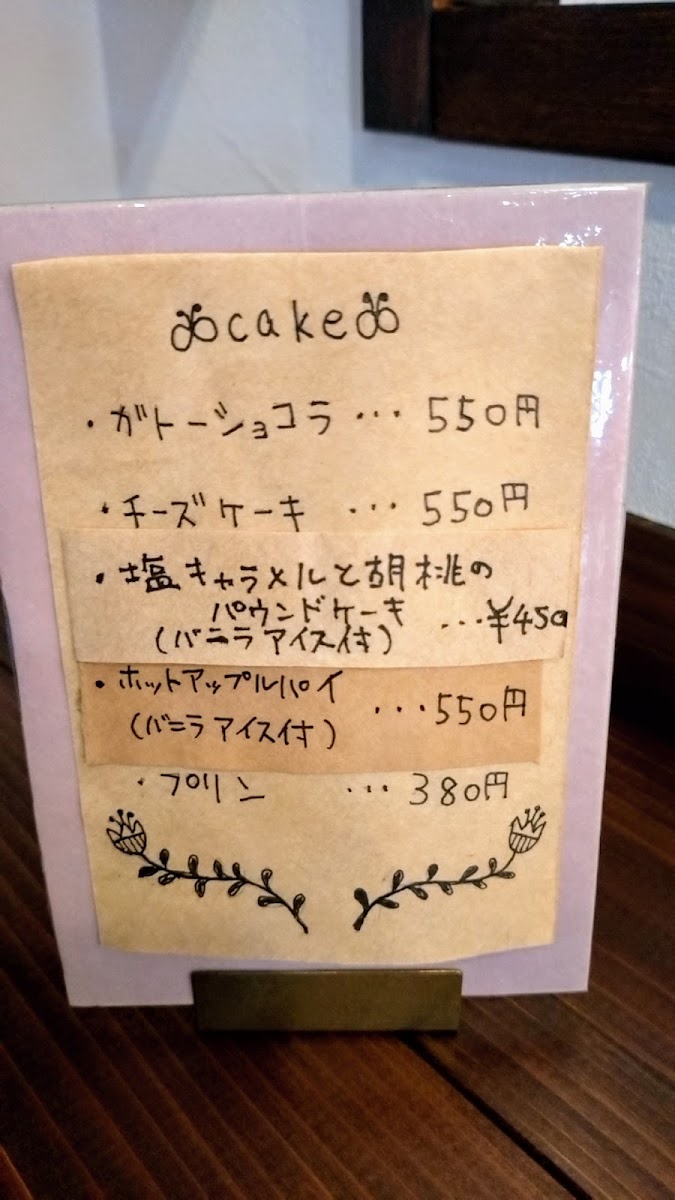 cake
・ガトーショコラ … 550円
・チーズケーキ … 550円
・塩キャラメルと胡桃の
パウンドケーキ
(バニラアイス付) …¥450
・ホットアップルパイ
(バニラアイス付) …550円
・プリン …380円